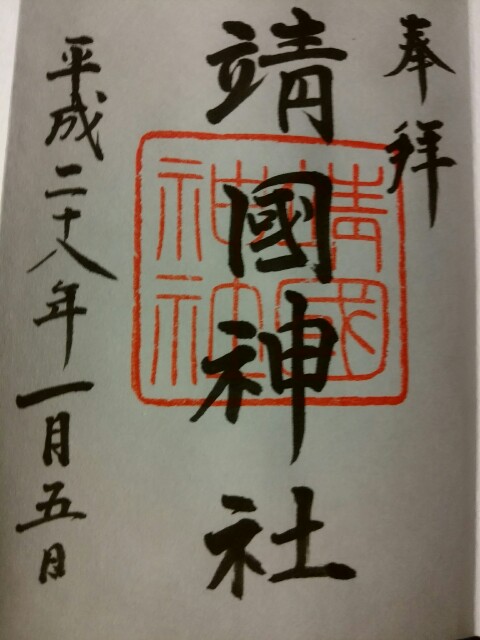 奉拝
靖國神社
靖國神社
平成二十八年一月五日